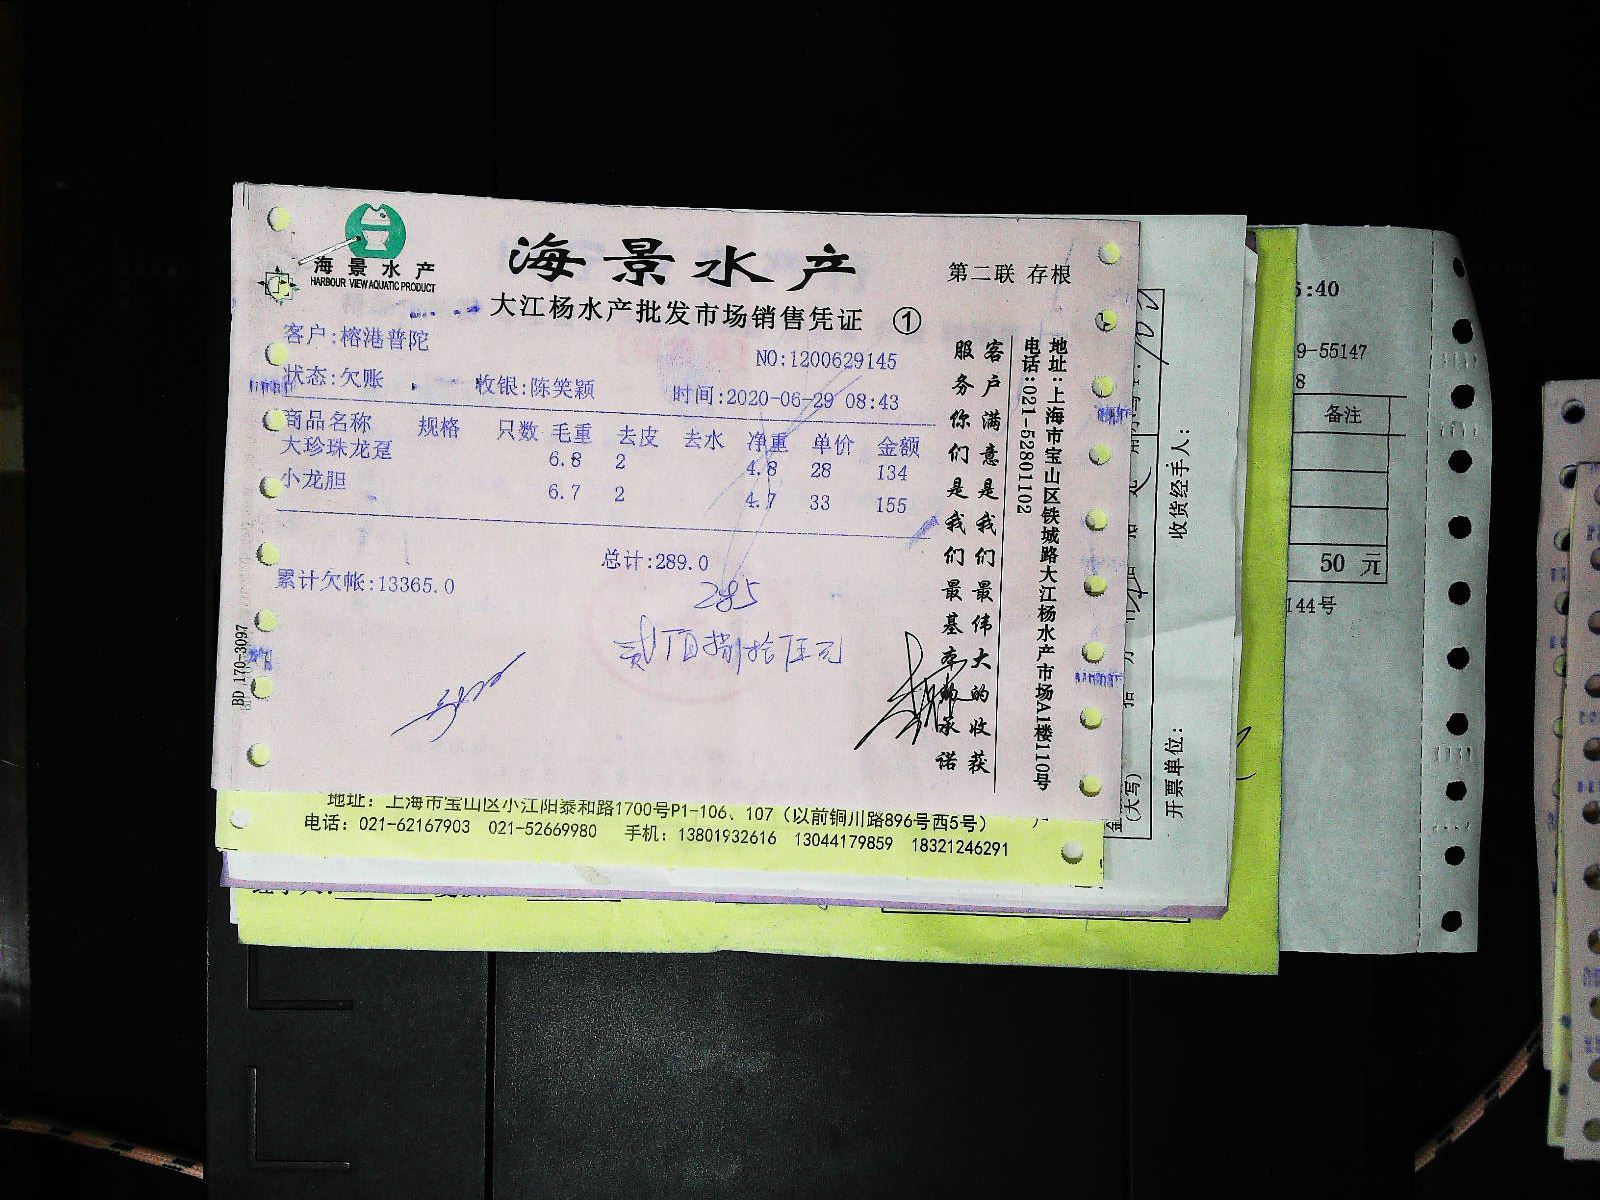 海景水产
HARBOUR VIEW AQUATIC PRODUCT
海景水产
第二联 存根
大江杨水产批发市场销售凭证 ①
客户:榕港普陀
NO:1200629145
状态:欠账 收银:陈笑颖 时间:2020-06-29 08:43
商品名称 规格 只数 毛重 去皮 去水 净重 单价 金额
大珍珠龙趸 6.8 2 4.8 28 134
小龙胆 6.7 2 4.7 33 155
总计:289.0
累计欠帐:13365.0
285
贰百捌拾伍元
客户满意是我们最伟大的收获
服务你们是我们最基本的承诺
地址:上海市宝山区铁城路大江杨水产市场A1楼110号
电话:021-52801102
BD 170-3097
地址: 上海市宝山区小江阳泰和路1700号P1-106、107 (以前铜川路896号西5号)
电话: 021-62167903 021-52669980 手机: 13801932616 13044179859 18321246291
收货经手人:
开票单位:
(大写)
5:40
9-55147
8
备注
50 元
144号